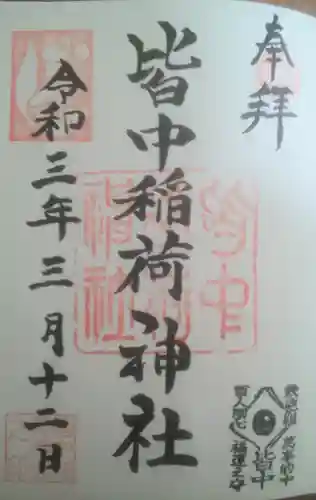 奉拝
皆中稲荷神社
令和三年三月十二日
皆中